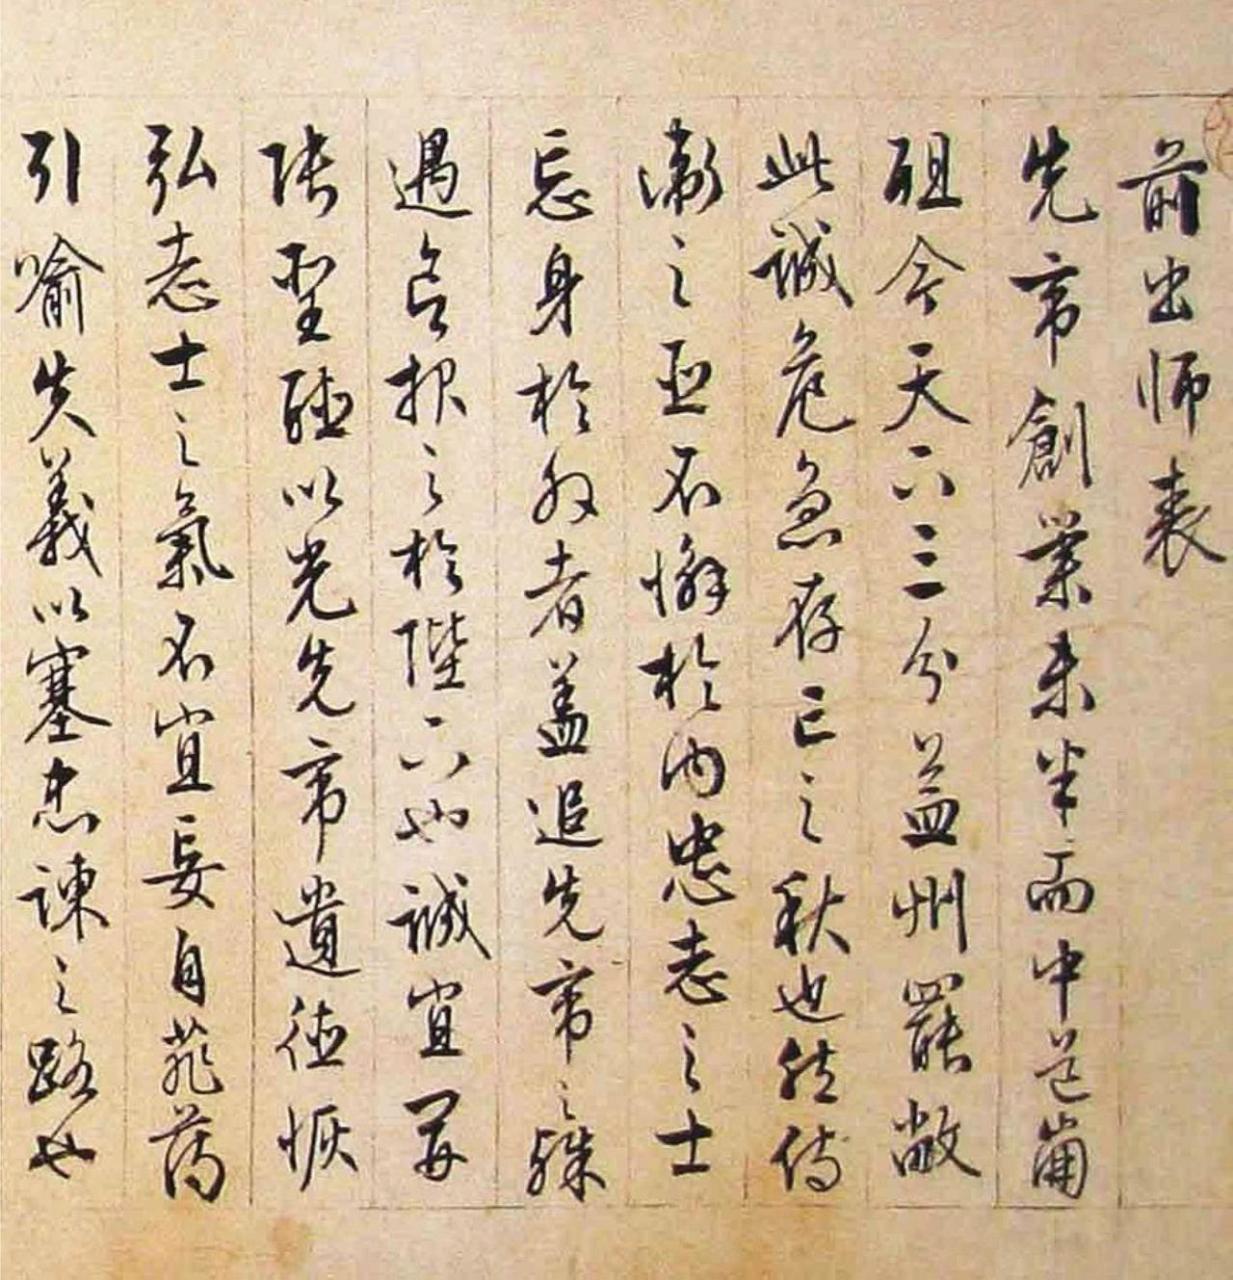 前出師表
先帝創業未半而中道崩
殂今天下三分益州罷敝
此誠危急存亡之秋也然侍
衛之臣不懈於内忠志之士
忘身於外者盖追先帝之殊
遇欲報之於陛下也誠宜開
張聖聽以光先帝遺德恢
弘志士之氣不宜妄自菲薄
引喻失義以塞忠諫之路也